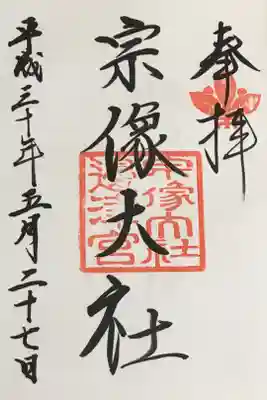 奉拝
宗像大社
宗像大社
邉津宮
平成三十年五月二十七日